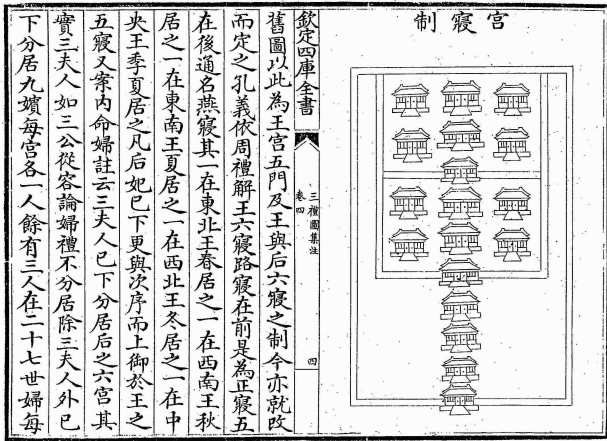 宫寢制
欽定四庫全書
三禮圖集注
卷四
四
舊圖以此為王宮五門及王與后六寢之制今亦就改
而定之孔義依周禮解王六寢路寢在前是為正寢五
在後通名燕寢其一在東北王春居之一在西南王秋
居之一在東南王夏居之一在西北王冬居之一在中
央王季夏居之凡后妃已下更與次序而上御於王之
五寢又案内命婦註云三夫人已下分居后之六宫其
實三夫人如三公從容論婦禮不分居除三夫人外已
下分居九嬪每宫各一人餘有三人在二十七世婦每